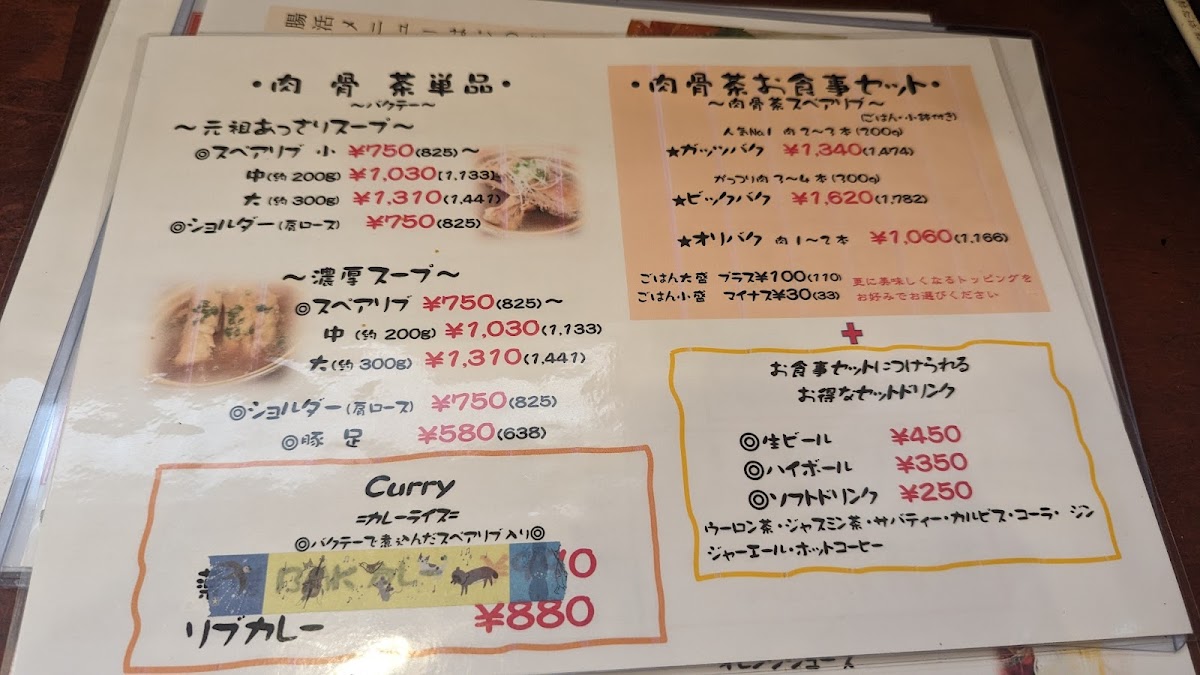 腸活メニュー
・肉骨茶単品・
～バクテー～
～元祖あっさりスープ～
◎スペアリブ 小 ¥750(825)～
中(約200g) ¥1,030(1,133)
大(約300g) ¥1,310(1,441)
◎ショルダー(肩ロース) ¥750(825)
～濃厚スープ～
◎スペアリブ ¥750(825)～
中(約200g) ¥1,030(1,133)
大(約300g) ¥1,310(1,441)
◎ショルダー(肩ロース) ¥750(825)
◎豚足 ¥580(638)
Curry
=カレーライス=
◎バクテーで煮込んだスペアリブ入り◎
リブカレー ¥880
・肉骨茶お食事セット・
～肉骨茶スペアリブ～
(ごはん・小鉢付き)
人気No.1 肉2～3本(200g)
★ガッツバク ¥1,340(1,474)
がっつり肉3～4本(300g)
★ビックバク ¥1,620(1,782)
★オリバク 肉1～2本 ¥1,060(1,166)
ごはん大盛 プラス¥100(110)
ごはん小盛 マイナス¥30(33)
更に美味しくなるトッピングを
お好みでお選びください
+
お食事セットにつけられる
お得なセットドリンク
◎生ビール ¥450
◎ハイボール ¥350
◎ソフトドリンク ¥250
ウーロン茶・ジャスミン茶・サバティー・カルピス・コーラ・ジン
ジャーエール・ホットコーヒー